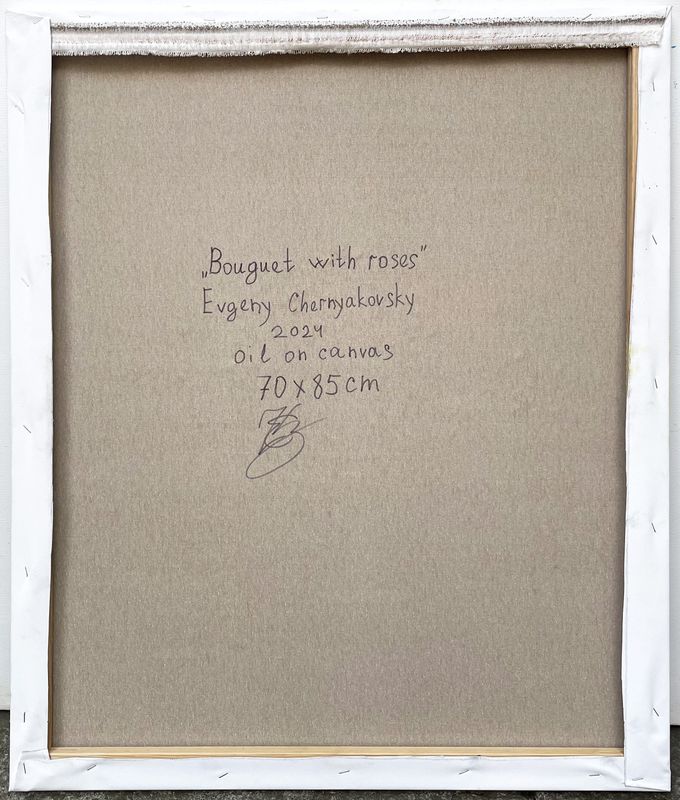 „Bouguet with roses"
Evgeny Chernyakovsky
2024
oil on canvas
70x85cm